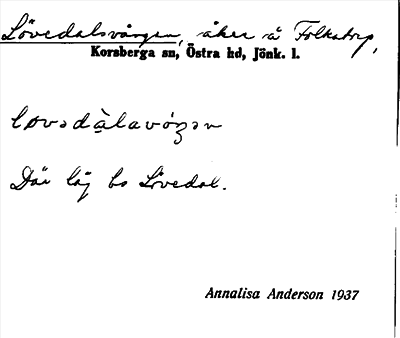 Lövedalsvången, åker å Folkatorp,
Korsberga sn, Östra hd, Jönk. l.
løvədàlavóŋən
Där låg bs Lövedal.
Annalisa Anderson 1937